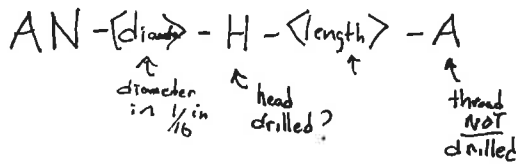 AN - <diam> - H - <length> - A
diameter
in 1/16 in
head
drilled?
thread
NOT
drilled